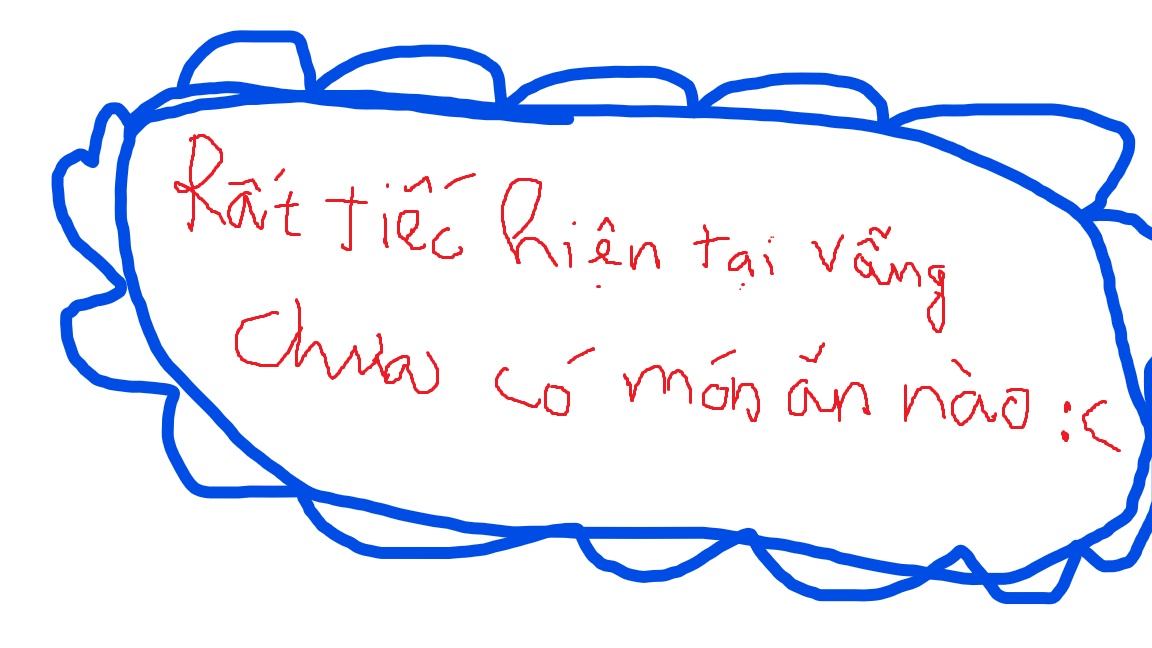 Rất tiếc hiện tại vẫng
chưa có món ăn nào :<